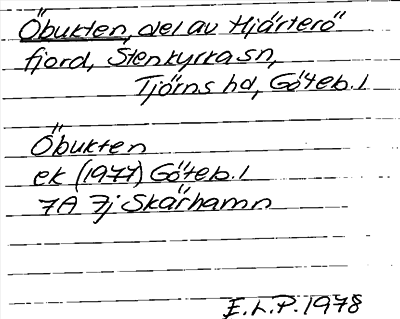 Öbukten, del av Hjärterö
fjord, Stenkyrka sn,
Tjörns hd, Göteb. l
Öbukten
ek (1977) Göteb. l
7A 7j Skärhamn
E.L.P. 1978